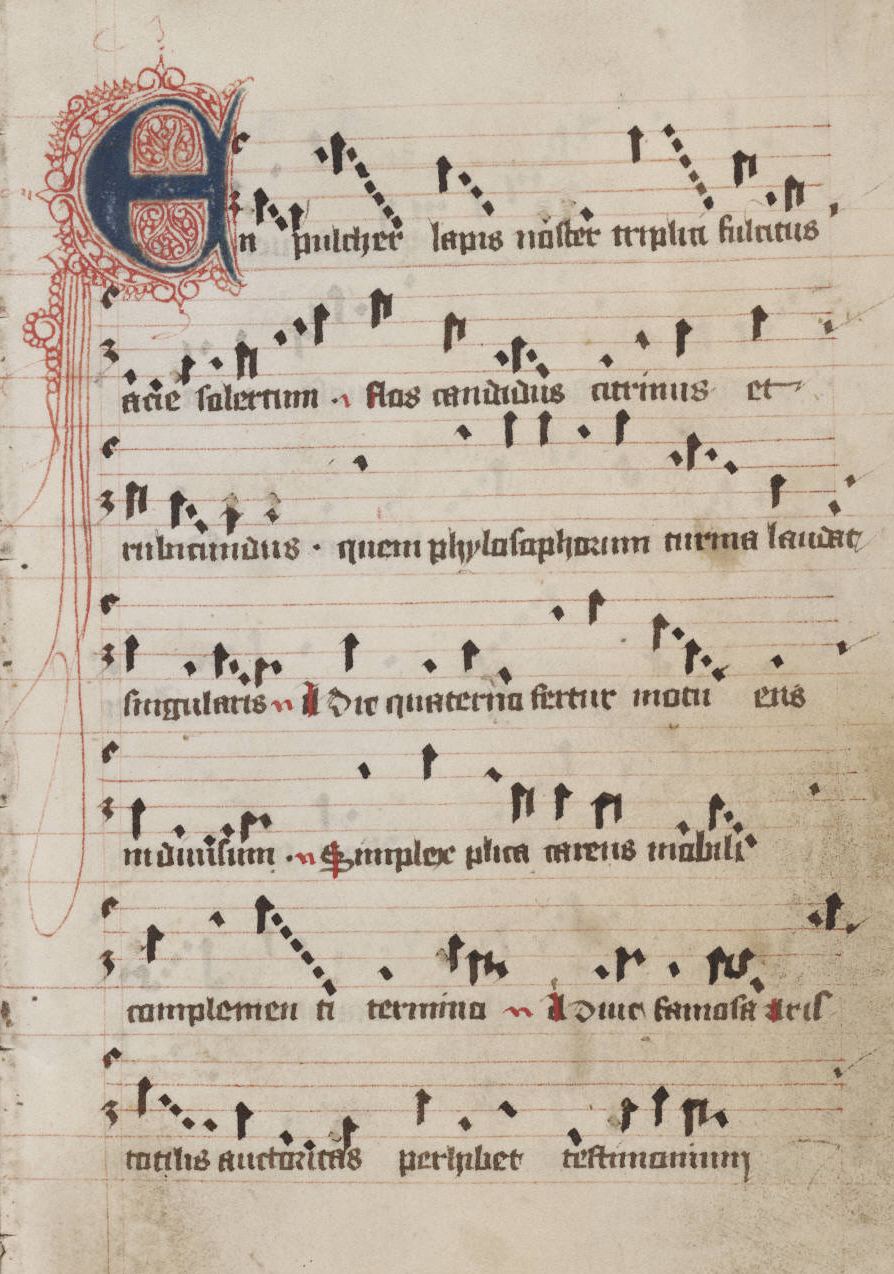 En pulcher lapis noster triplici fulcitus
acie solertum · flos candidus citrinus et
rubicundus · quem phylosophorum turma laudat
singularis Adhuc quaterno fertur motu ens
indiuisum · Simplex plica carens mobili
complementi termino Ad huic famosa aris
totilis auctoritas perhibet testimonium